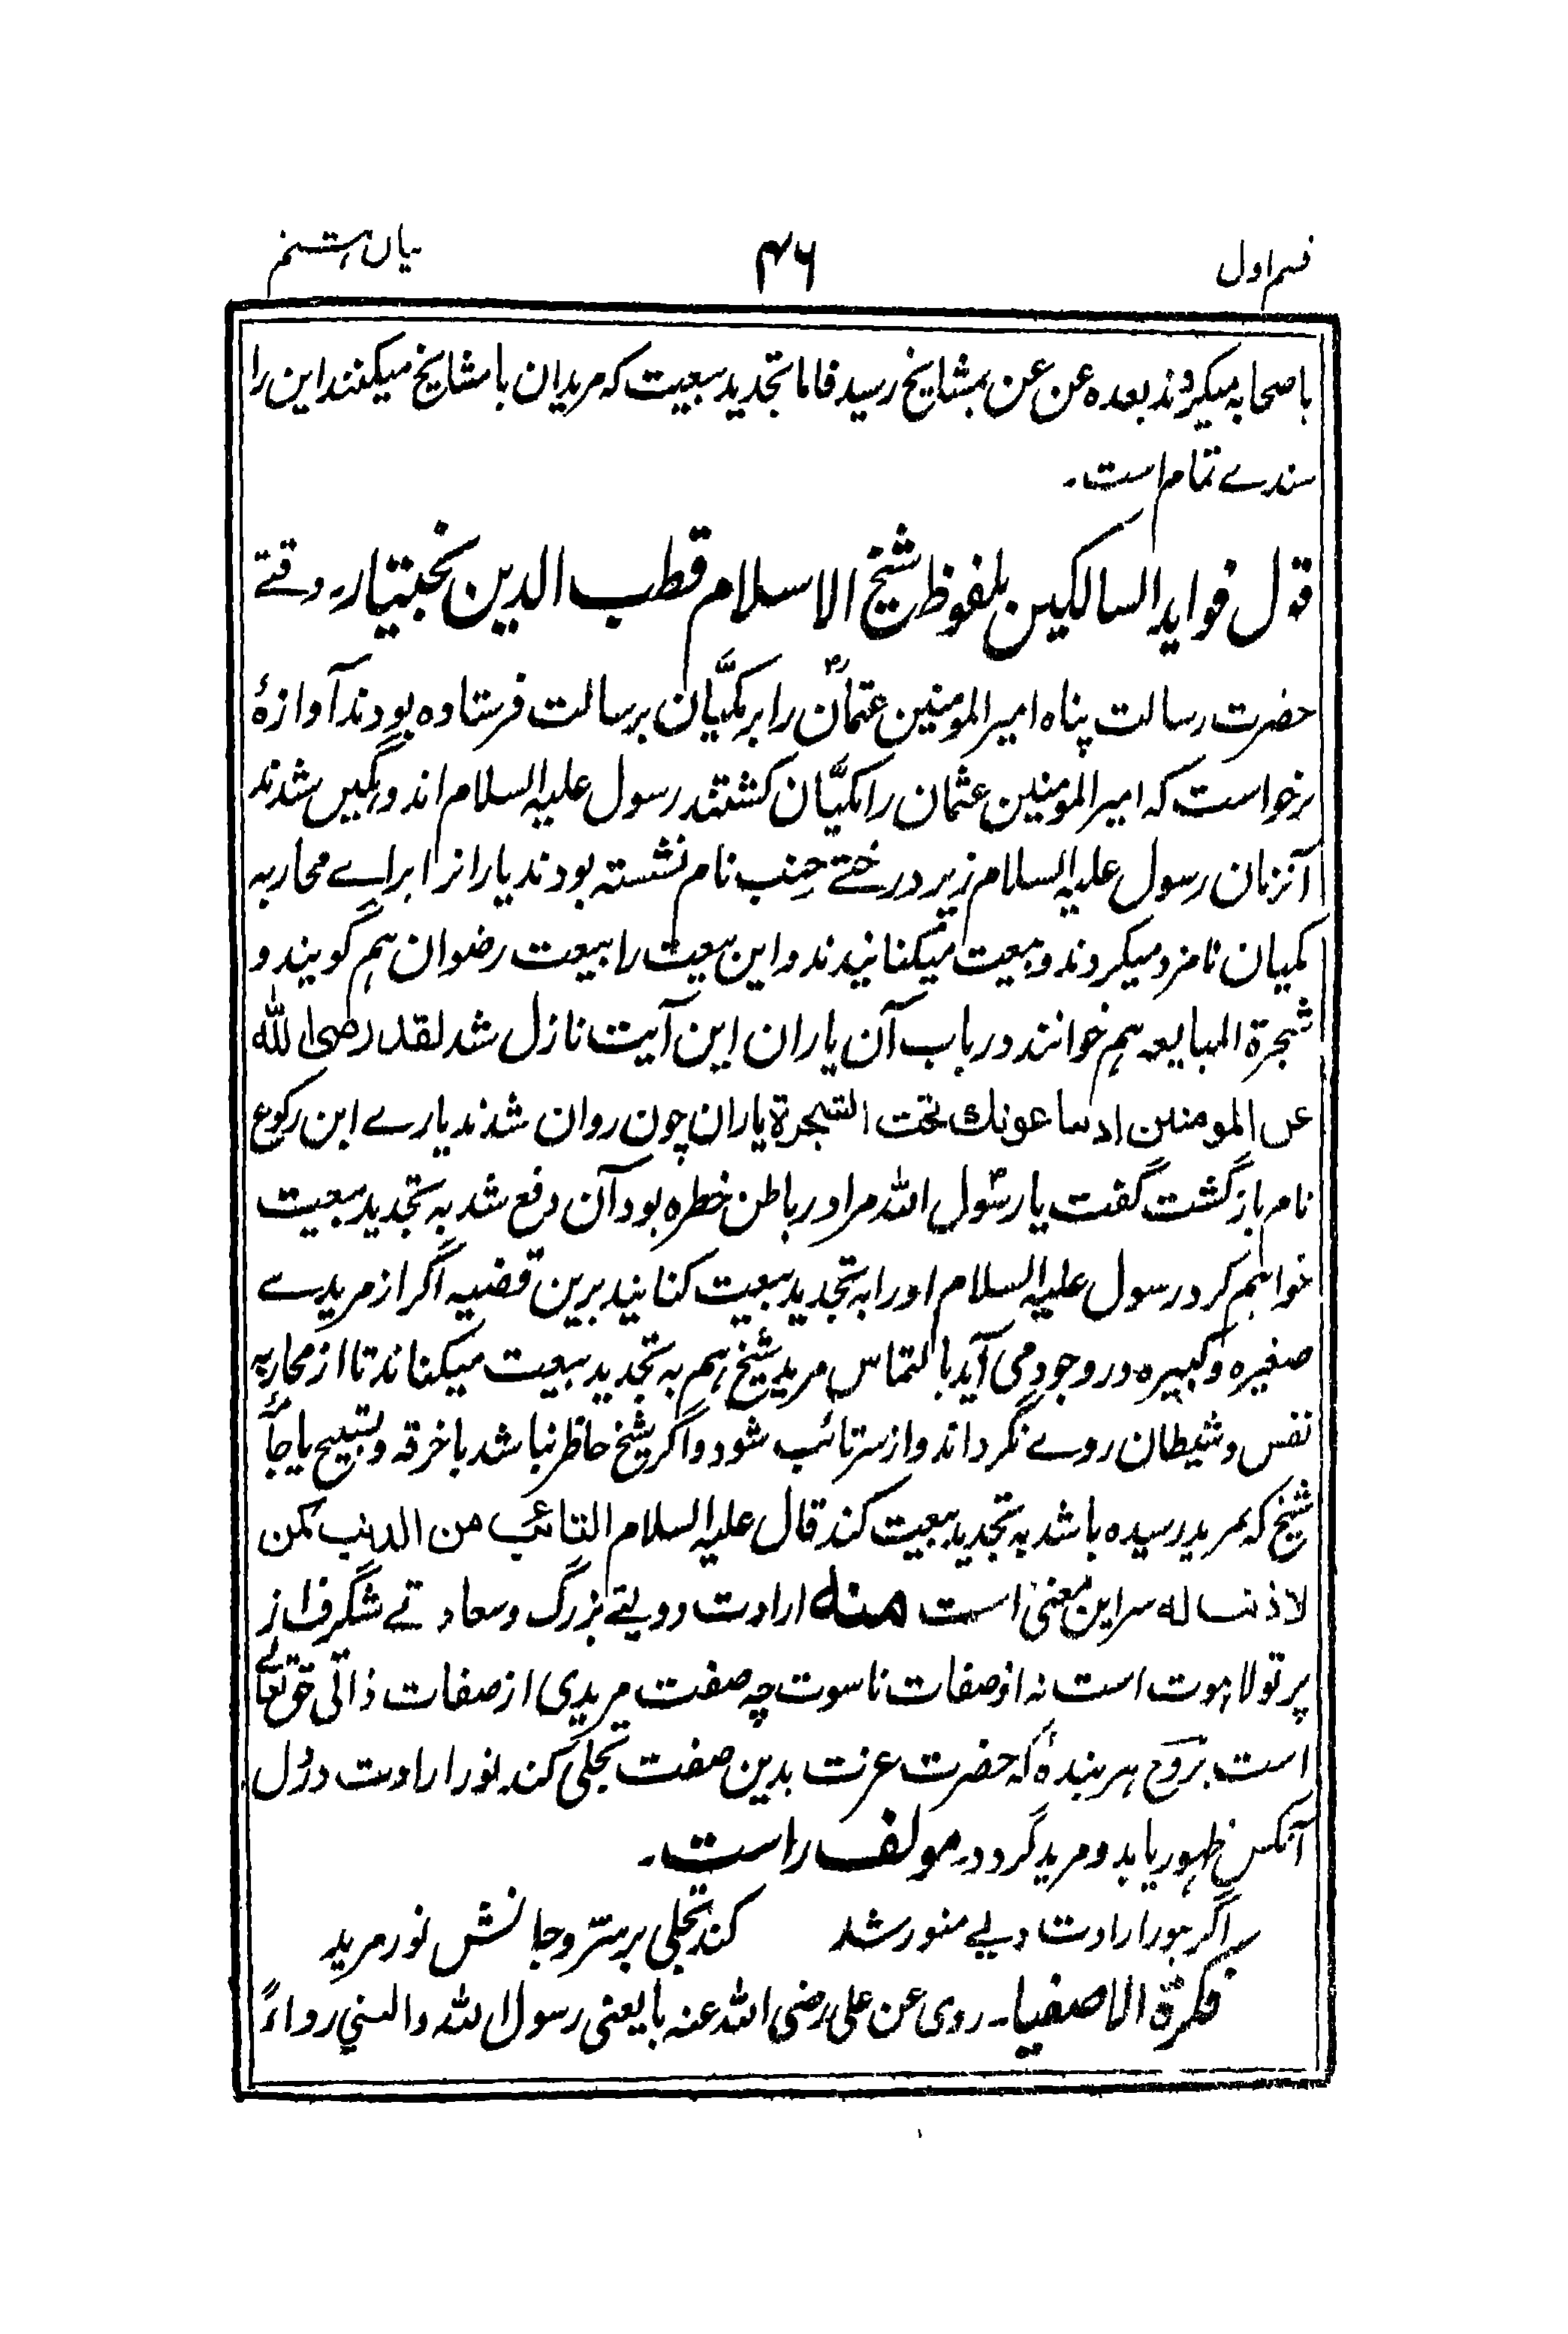 قسم اول ۴۶ بیان ہشتم
باصحابہ میکردند بعدہ عن عن بمشایخ رسید فاما تجدید بیعت کہ مریدان بامشایخ میکنند این را
سندے تمام است۔
قول فواید السالکین بلفوظ شیخ الاسلام قطب الدین بختیار۔ وقتے
حضرت رسالت پناہ امیر المومنین عثمانؓ را بر مکّیان برسالت فرستادہ بودند آوازۂ
برخواست کہ امیر المومنین عثمان را مکیّان کشتند رسول علیہ السلام اندوہگیں شدند
آنزمان رسول علیہ السلام زیر درختے جنب نام نشستہ بودند یارانرا براے محاربہ
مکیان نامزد میکردند و بیعت میکنانیدند و این بیعت را بیعت رضوان ہم گویند و
شجرة المبایعہ ہم خوانند در باب آن یاران این آیت نازل شد لقد رضی اللہ
عن المومنین اذ یبایعونك تحت الشجرة یاران چون روان شدند یارے ابن رکوع
نام بازگشت گفت یا رسولؐ اللہ مرا در باطن خطرہ بود آن دفع شد بہ تجدید بیعت
خواہم کرد رسول علیہ السلام او را بہ تجدید بیعت کنانید برین قضیہ اگر از مریدے
صغیرہ و کبیرہ در وجود می آید بالتماس مرید شیخ ہم بہ تجدید بیعت میکناند تا از محاربہ
نفس و شیطان روے نگرداند و از سر تائب شود و اگر شیخ حاظر نباشد با خرقہ و تسبیح یا جاۂ
شیخ کہ بمرید رسیدہ باشد بہ تجدید بیعت کند قال علیہ السلام التائب من الذنب کمن
لا ذنب لہ سر این معنی است منہ ارادت دولتے بزرگ و سعادتے شگرف از
پرتو لاہوت است نہ از صفات ناسوت چہ صفت مریدی از صفات ذاتی حق تعالےٰ
است بروح ہر بندۂ کہ حضرت عزت بدین صفت تجلی کند نور ارادت در دل
آنکس ظہور یابد و مرید گردد۔ مولف راست۔
اگر بنور ارادت دلے منور شد کند تجلی بر سرّ و جانش نور مرید
فکرة الاصفیا۔ روی عن علی رضی اللہ عنہ بایعنی رسول اللہ والبسنی رواءً